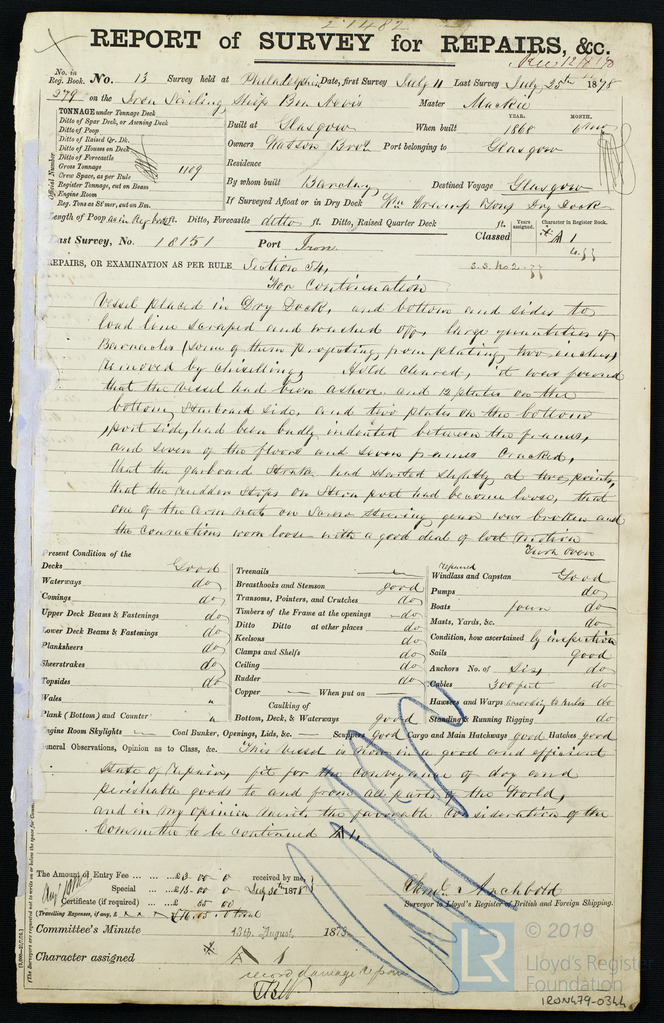 REPORT of SURVEY for REPAIRS, &c.
No. in Reg. Book.
279
No. 13 Survey held at Philadelphia Date, first Survey July 11 Last Survey July 25th 1878
on the Iron Sailing Ship Ben Nevis Master Mackie
TONNAGE under Tonnage Deck
Ditto of Spar Deck, or Awning Deck
Ditto of Poop
Ditto of Raised Qr. Dk.
Ditto of Houses on Deck
Ditto of Forecastle
Gross Tonnage
Crew Space, as per Rule
Register Tonnage, cut on Beam
Engine Room
Reg. Tons as 8F mer, cut on Bm.
1109
Official Number
Built at Glasgow When built YEAR. 1868 MONTH. 6
Owners Watson Bros Port belonging to Glasgow
Residence
By whom built Barclay Destined Voyage Glasgow
If Surveyed Afloat or in Dry Dock Wm Cramp & Sons Dry Dock
Length of Poop as in Reg Book ft. Ditto, Forecastle ditto ft. Ditto, Raised Quarter Deck ft.
Last Survey, No. 18151 Port Iron Classed Years assigned. Character in Register Book. A 1
REPAIRS, OR EXAMINATION AS PER RULE Section 54, S.S. No 2
For Continuation
Vessel placed in Dry Dock, and bottom and sides to
load line scraped and washed off, large quantities of
Barnacles (some of them projecting from plating two inches)
removed by chiselling. Hold cleaned, it was found
that the vessel had been ashore and 12 plates on the
bottom, Starboard side, and two plates on the bottom
port side, had been badly indented between the frames,
and seven of the floors and seven frames cracked,
that the garboard Strake had started slightly at two points,
that the rudder stops on Stern post had become loose, that
one of the arm nuts on Screw Steering gear was broken and
the connections worn loose with a good deal of lost motion
Turn over
Present Condition of the
Decks Good
Waterways do
Comings do
Upper Deck Beams & Fastenings do
Lower Deck Beams & Fastenings do
Planksheers do
Sheerstrakes do
Topsides do
Wales "
Plank (Bottom) and Counter "
Treenails —
Breasthooks and Stemson good
Transoms, Pointers, and Crutches do
Timbers of the Frame at the openings do
Ditto Ditto at other places do
Keelsons do
Clamps and Shelfs do
Ceiling do
Rudder do
Copper — When put on —
Caulking of
Bottom, Deck, & Waterways good
repaired
Windlass and Capstan Good
Pumps do
Boats four do
Masts, Yards, &c. do
Condition, how ascertained by inspection
Sails good
Anchors No. of Six do
Cables 300 do
Hawsers and Warps according to rules do
Standing & Running Rigging do
Engine Room Skylights — Coal Bunker, Openings, Lids, &c. — Scuppers good Cargo and Main Hatchways good Hatches good
General Observations, Opinion as to Class, &c. This vessel is now in a good and efficient
state of repair, fit for the conveyance of dry and
perishable goods to and from all parts of the World,
and in my opinion merits the favorable consideration of the
Committee to be continued A 1.
The Amount of Entry Fee £3 00 0 received by me,
Special £13 00 0 July 30th 1878
Certificate (if required) £ 00 0
(Travelling Expenses, if any, £
Archbold
Surveyor to Lloyd's Register of British and Foreign Shipping.
Committee's Minute 13th August, 1878
Character assigned A 1
record damage repairs
© 2019
LR
Lloyd's Register
Foundation
IRON479-0344